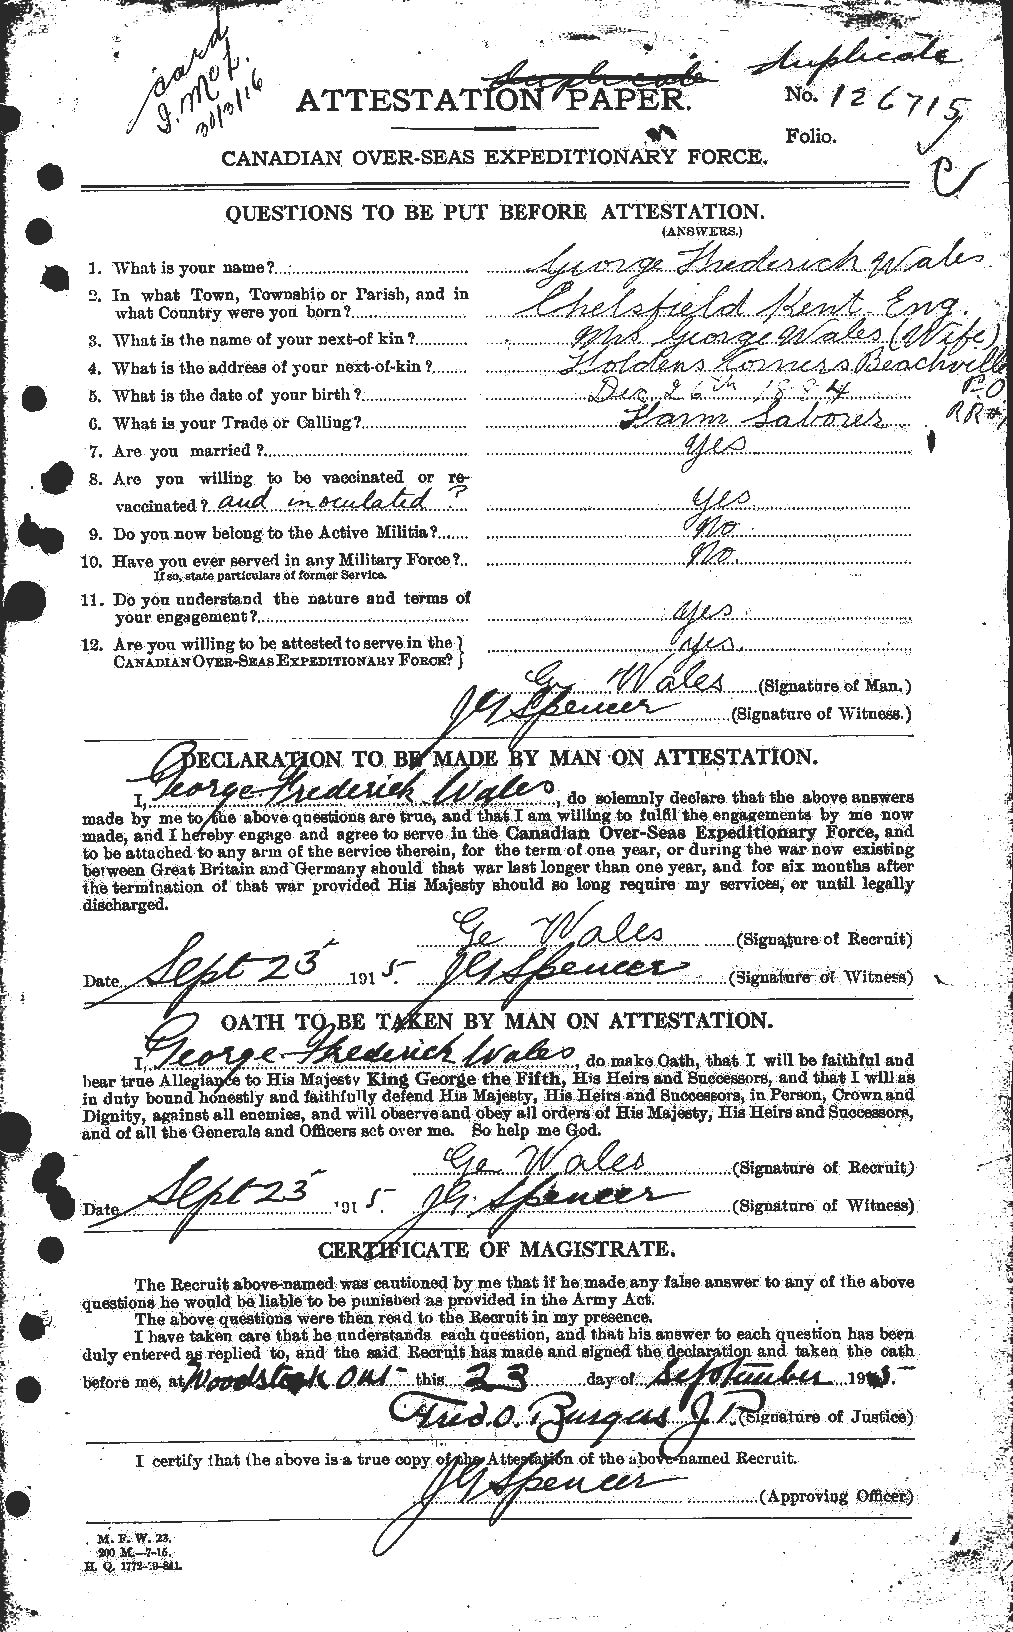 card
30/3/16
Duplicate
Duplicate
ATTESTATION PAPER.
No. 126715
Folio.
CANADIAN OVER-SEAS EXPEDITIONARY FORCE.
QUESTIONS TO BE PUT BEFORE ATTESTATION.
(ANSWERS.)
1. What is your name? George Frederick Wales
2. In what Town, Township or Parish, and in
what Country were you born? Chelsfield Kent Eng.
3. What is the name of your next-of kin? Mrs George Wales (Wife)
4. What is the address of your next-of-kin? Holdens Corners Beachville
P.O
5. What is the date of your birth? Dec 26th 1884
RR#1
6. What is your Trade or Calling? Farm Laborer
7. Are you married? Yes
8. Are you willing to be vaccinated or re-
vaccinated? and inoculated? Yes
9. Do you now belong to the Active Militia? No
10. Have you ever served in any Military Force? No.
If so, state particulars of former Service.
11. Do you understand the nature and terms of
your engagement? Yes
12. Are you willing to be attested to serve in the } Yes.
CANADIAN OVER-SEAS EXPEDITIONARY FORCE? }
Ge Wales (Signature of Man.)
JG Spencer (Signature of Witness.)
DECLARATION TO BE MADE BY MAN ON ATTESTATION.
I, George Frederick Wales, do solemnly declare that the above answers
made by me to the above questions are true, and that I am willing to fulfil the engagements by me now
made, and I hereby engage and agree to serve in the Canadian Over-Seas Expeditionary Force, and
to be attached to any arm of the service therein, for the term of one year, or during the war now existing
between Great Britain and Germany should that war last longer than one year, and for six months after
the termination of that war provided His Majesty should so long require my services, or until legally
discharged.
Ge Wales (Signature of Recruit)
Date Sept 23 1915. JG Spencer (Signature of Witness)
OATH TO BE TAKEN BY MAN ON ATTESTATION.
I, George Frederick Wales, do make Oath, that I will be faithful and
bear true Allegiance to His Majesty King George the Fifth, His Heirs and Successors, and that I will as
in duty bound honestly and faithfully defend His Majesty, His Heirs and Successors, in Person, Crown and
Dignity, against all enemies, and will observe and obey all orders of His Majesty, His Heirs and Successors,
and of all the Generals and Officers set over me. So help me God.
Ge Wales (Signature of Recruit)
Date Sept 23 1915. JG. Spencer (Signature of Witness)
CERTIFICATE OF MAGISTRATE.
The Recruit above-named was cautioned by me that if he made any false answer to any of the above
questions he would be liable to be punished as provided in the Army Act.
The above questions were then read to the Recruit in my presence.
I have taken care that he understands each question, and that his answer to each question has been
duly entered as replied to, and the said Recruit has made and signed the declaration and taken the oath
before me, at Woodstock Ont this 23 day of September 1915.
Fred. O. Burgess J.P. (Signature of Justice)
I certify that the above is a true copy of the Attestation of the above-named Recruit.
JG Spencer (Approving Officer)
M. F. W. 23.
200 M.—7-15.
H. Q. 1772-39-841.